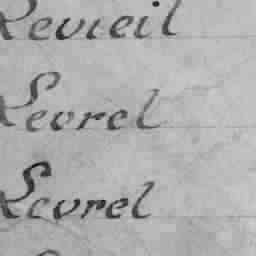 Revieil
Levrel
Levrel